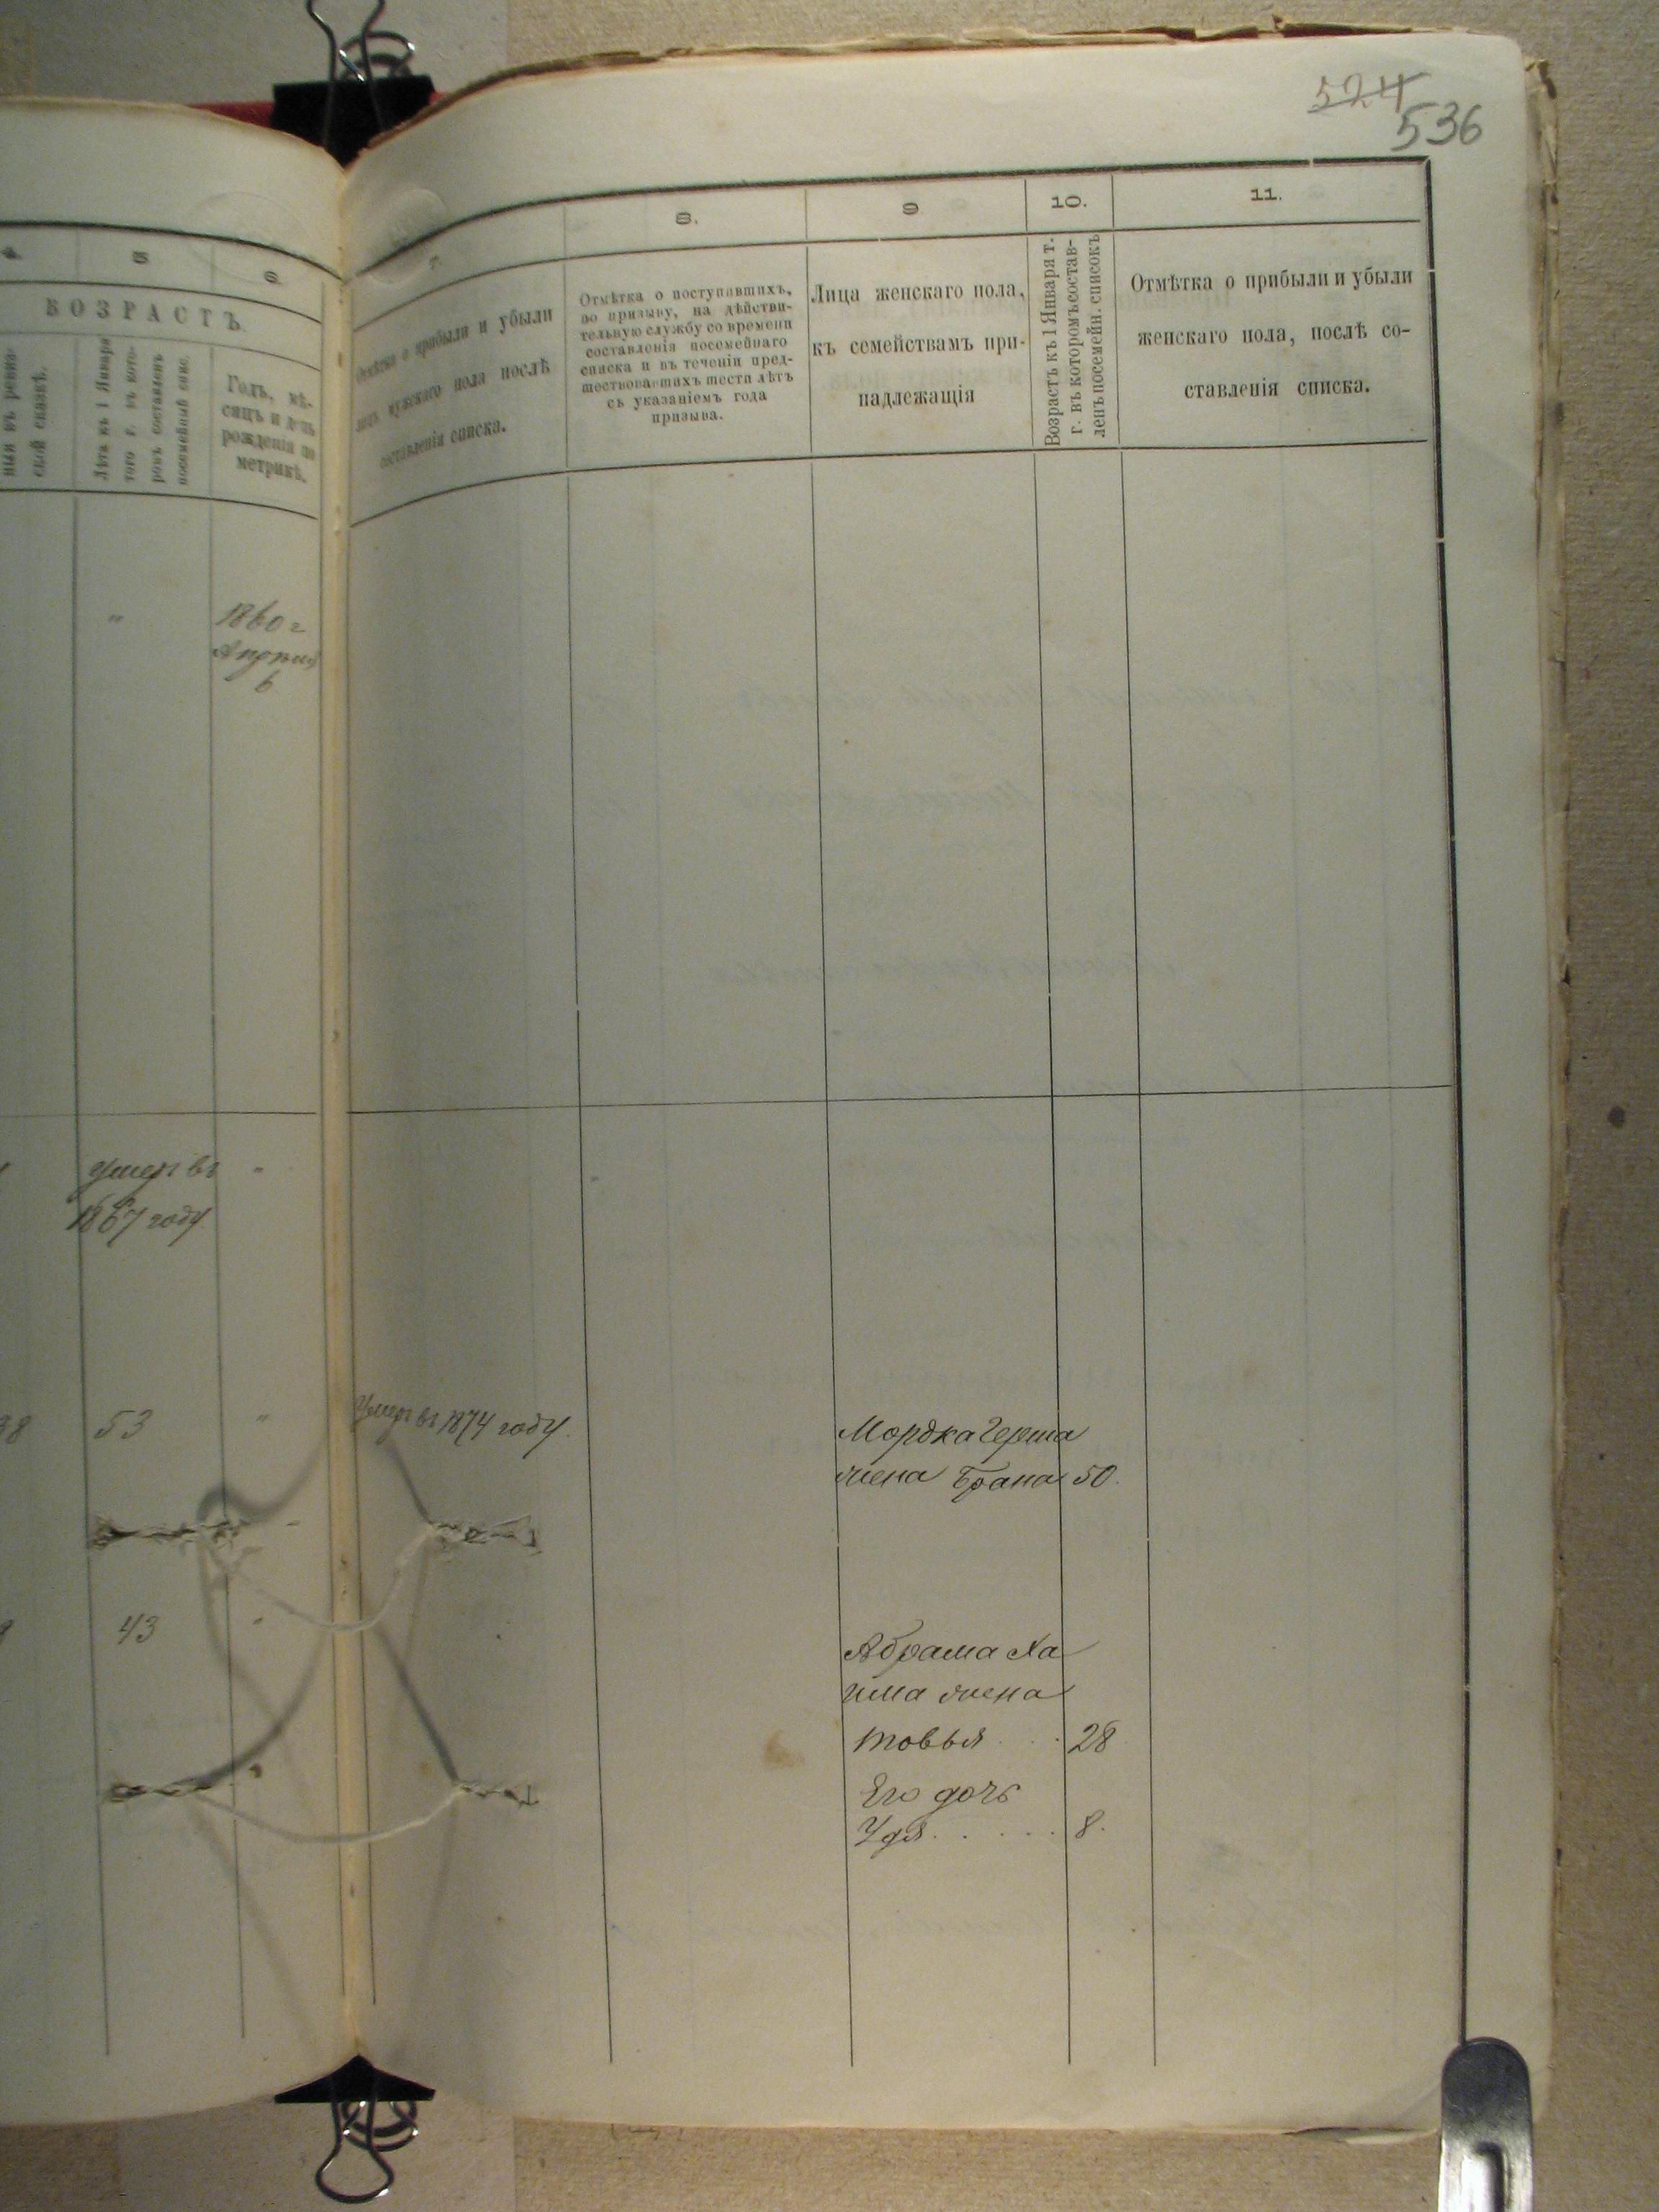 524
536
5
6
ВОЗРАСТЪ
ныя въ ревиз-
ской сказкѣ.
Лѣта къ 1 Января
того г. въ кото-
ромъ составленъ
посемейный спис.
Годъ, мѣ-
сяцъ и день
рожденія по
метрикѣ.
8.
9
10.
11.
Отмѣтка о прибыли и убыли
лицъ мужскаго пола послѣ
составленія списка.
Отмѣтка о поступившихъ,
по призыву, на дѣйстви-
тельную службу со времени
составленія посемейнаго
списка и въ теченіи пред-
шествовавшихъ шести лѣтъ
съ указаніемъ года
призыва.
Лица женскаго пола,
къ семействамъ при-
надлежащія
Возрастъ къ 1 Января т.
г. въ которомъ состав-
ленъ посемейн. списокъ
Отмѣтка о прибыли и убыли
женскаго пола, послѣ со-
ставленія списка.
" 1860 г
Апрѣля
6
умеръ въ "
1867 году
38 53 " Умеръ въ 1874 году.
Мордка Герша
жена Брана 50.
43 "
Абрама Ха
има жена
Товья . . . 28
Его дочь
Удя . . . . . 8.